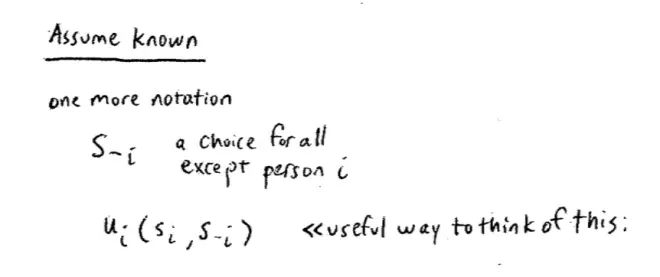 Assume known
one more notation
S-i a choice for all
except person i
ui (si, s-i) <<useful way to think of this: